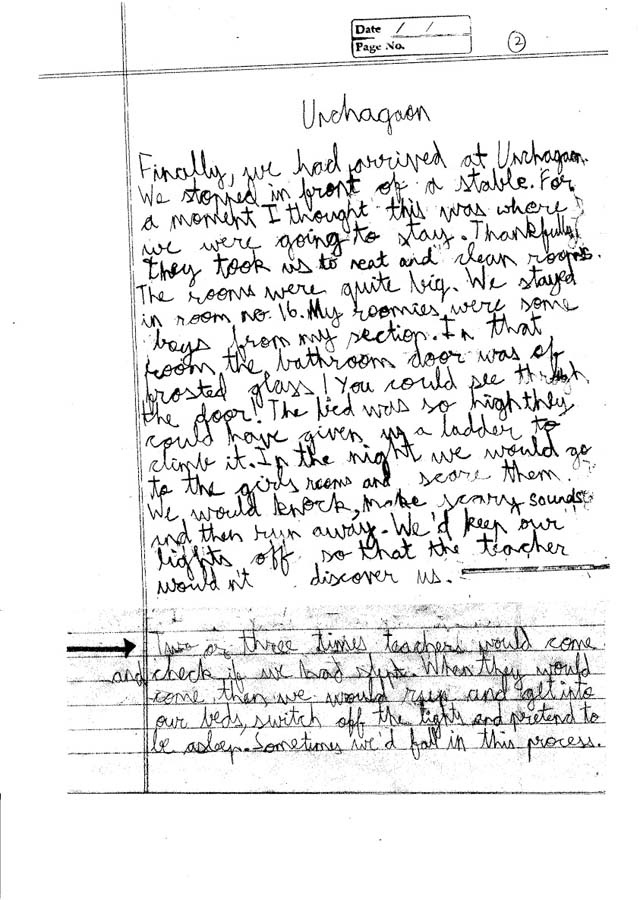 Date / /
Page No.
2
Unchagaon
Finally, we had arrived at Unchagaon.
We stopped in front of a stable. For
a moment I thought this was where
we were going to stay. Thankfully
they took us to neat and clean rooms.
The rooms were quite big. We stayed
in room no. 16. My roomies were some
boys from my section. In that
room the bathroom door was of
frosted glass! You could see through
the door! The bed was so high they
could have given us a ladder to
climb it. In the night we would go
to the girls rooms and scare them.
We would knock, make scary sounds
and then run away. We'd keep our
lights off so that the teacher
would nt discover us.
Two or three times teachers would come
and check if we had slept. When they would
come then we would run and get into
our beds, switch off the lights and pretend to
be asleep. Sometimes we'd fall in this process.